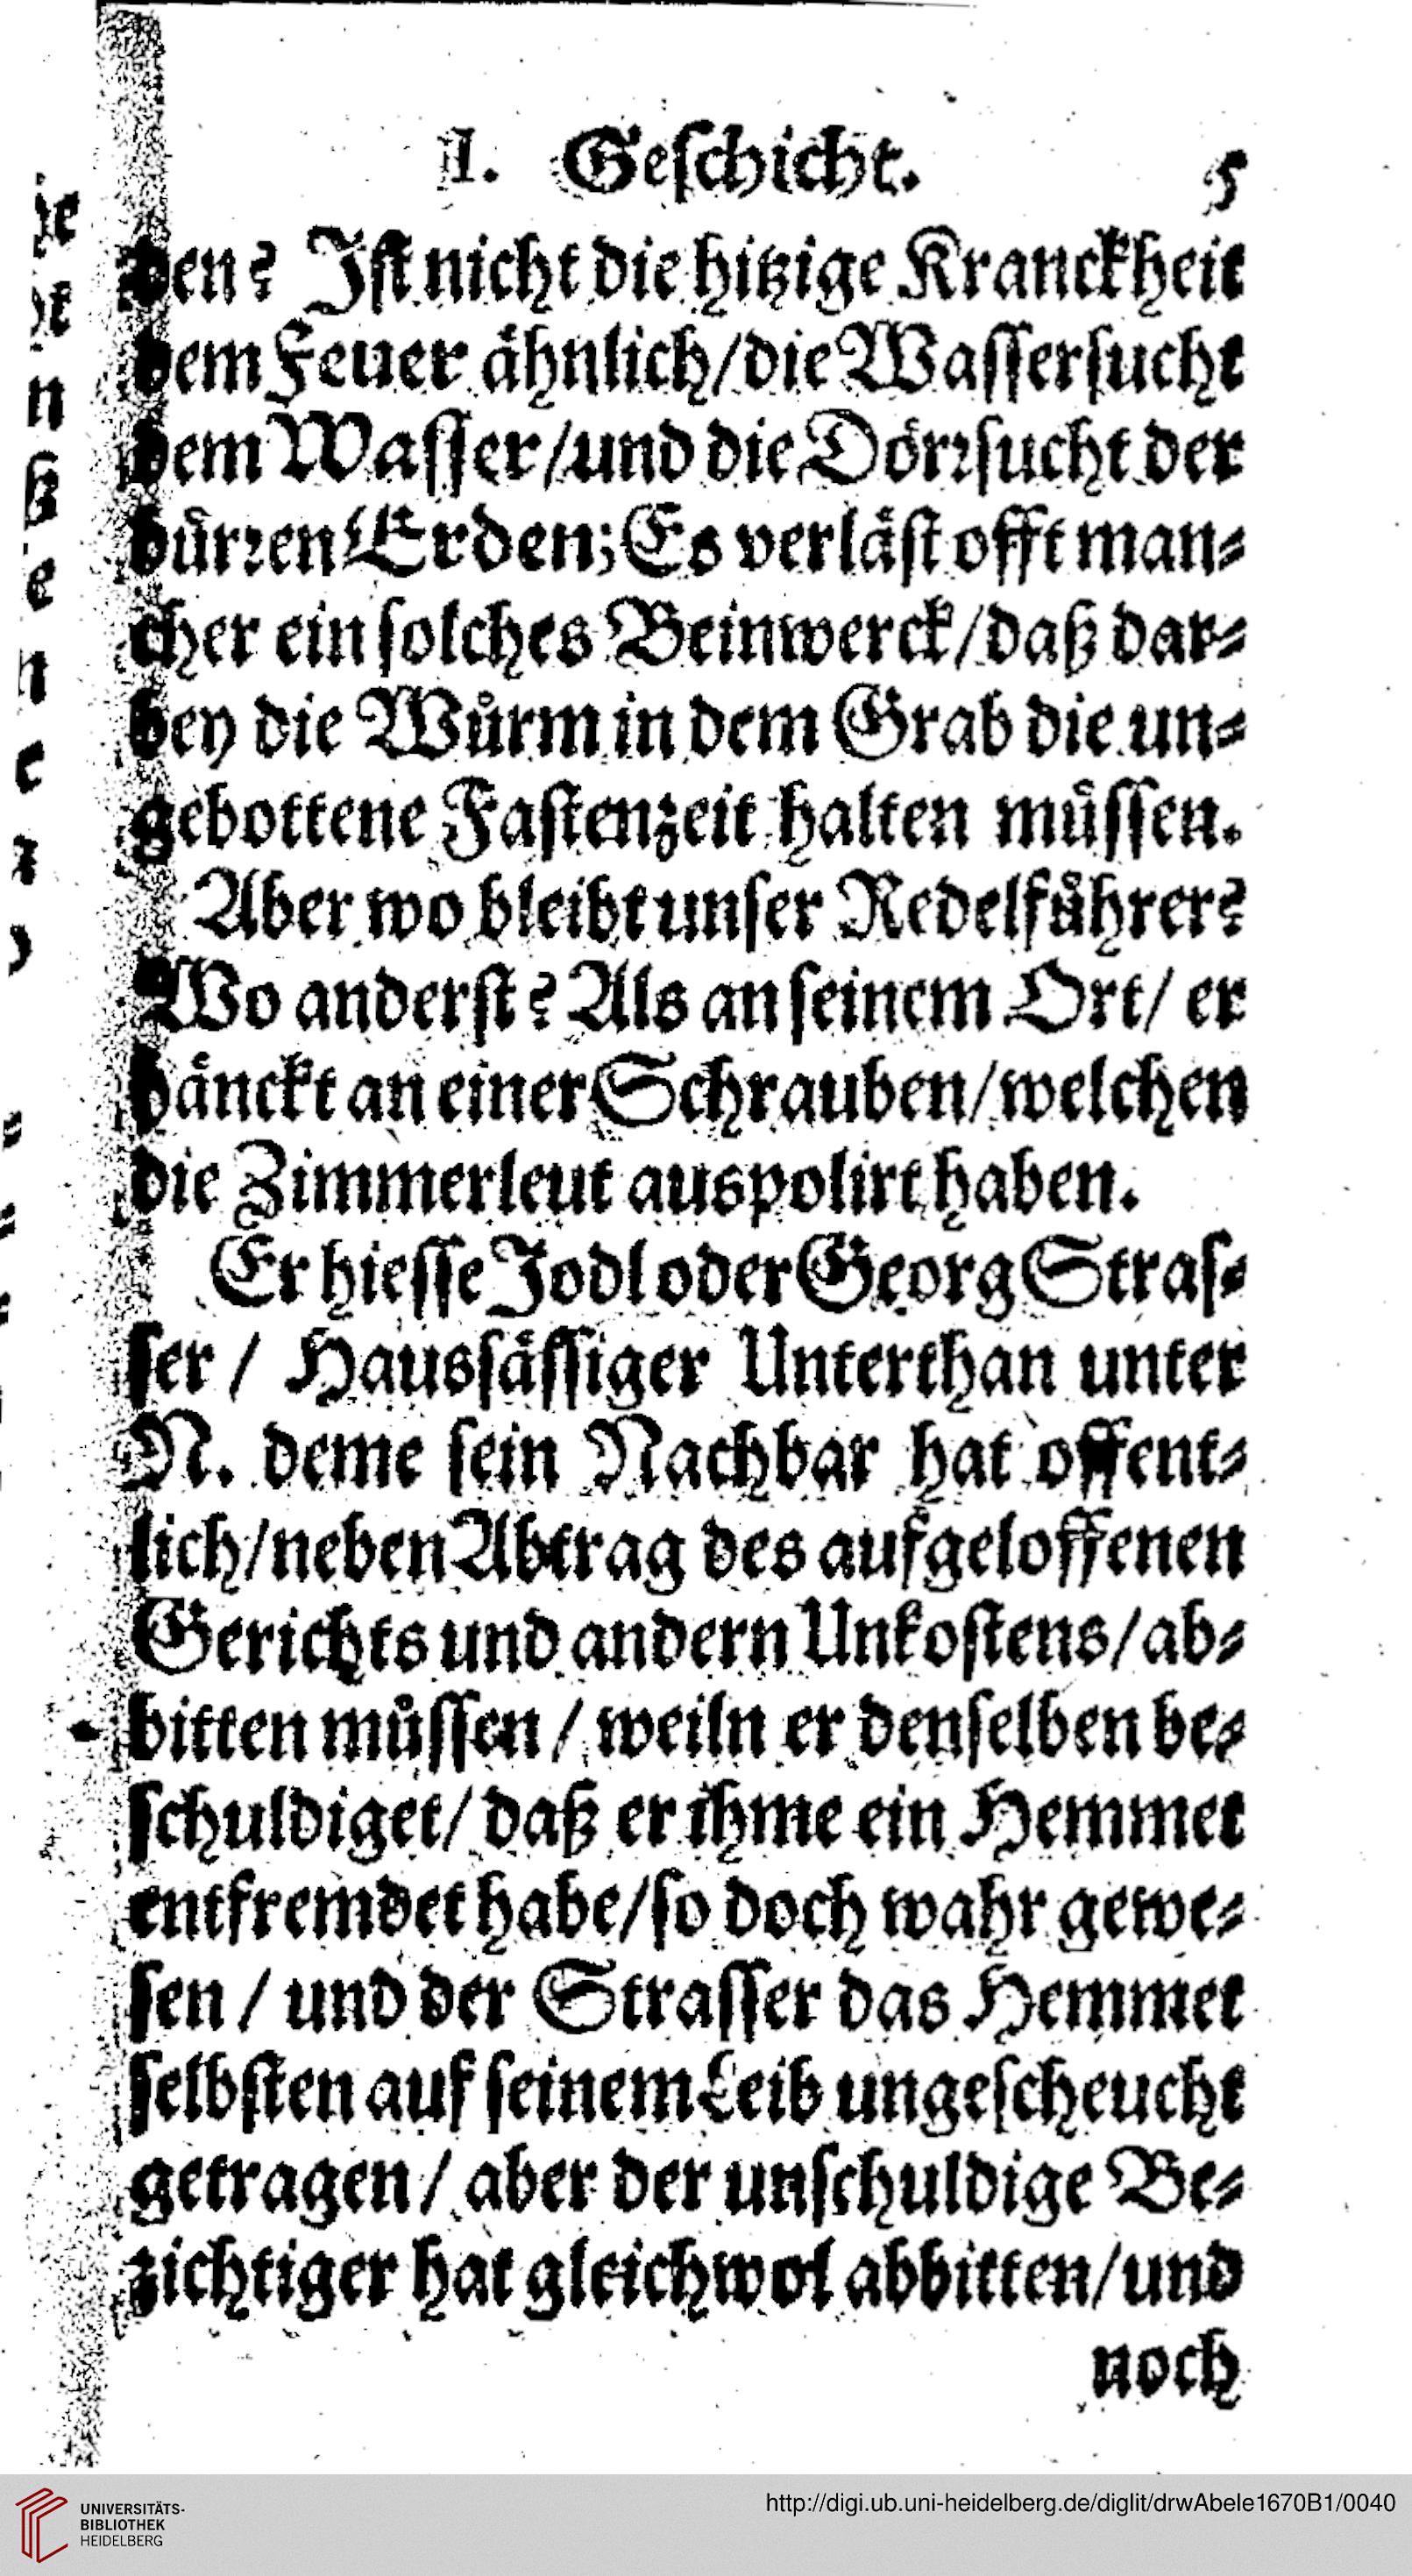 I. Geſchicht. 5
den? Iſt nicht die hitzige Kranckheit
dem Feuer aͤhnlich/die Waſſerſucht
dem Waſſer/und die Doͤrꝛſucht der
duͤrꝛen Erden; Es verlaͤſt offt man⸗
cher ein ſolches Beinwerck/daß dar⸗
bey die Wuͤrm in dem Grab die un⸗
gebottene Faſtenzeit halten muͤſſen.
Aber wo bleibt unſer Redelfuͤhrer?
Wo anderſt? Als an ſeinem Ort/ er
haͤnckt an einer Schrauben/welchen
die Zimmerleut auspolirt haben.
Er hieſſe Jodl oder Georg Straſ⸗
ſer / Hausſaͤſſiger Unterthan unter
N. deme ſein Nachbar hat offent⸗
lich/neben Abtrag des aufgeloffenen
Gerichts und andern Unkoſtens/ab⸗
bitten muͤſſen / weiln er denſelben be⸗
ſchuldiget/ daß er ihme ein Hemmet
entfremdet habe/ſo doch wahr gewe⸗
ſen / und der Straſſer das Hemmet
ſelbſten auf ſeinem Leib ungeſcheucht
getragen/ aber der unſchuldige Be⸗
zichtiger hat gleichwol abbitten/und
noch
UNIVERSITÄTS-
BIBLIOTHEK
HEIDELBERG
http://digi.ub.uni-heidelberg.de/diglit/drwAbele1670B1/0040